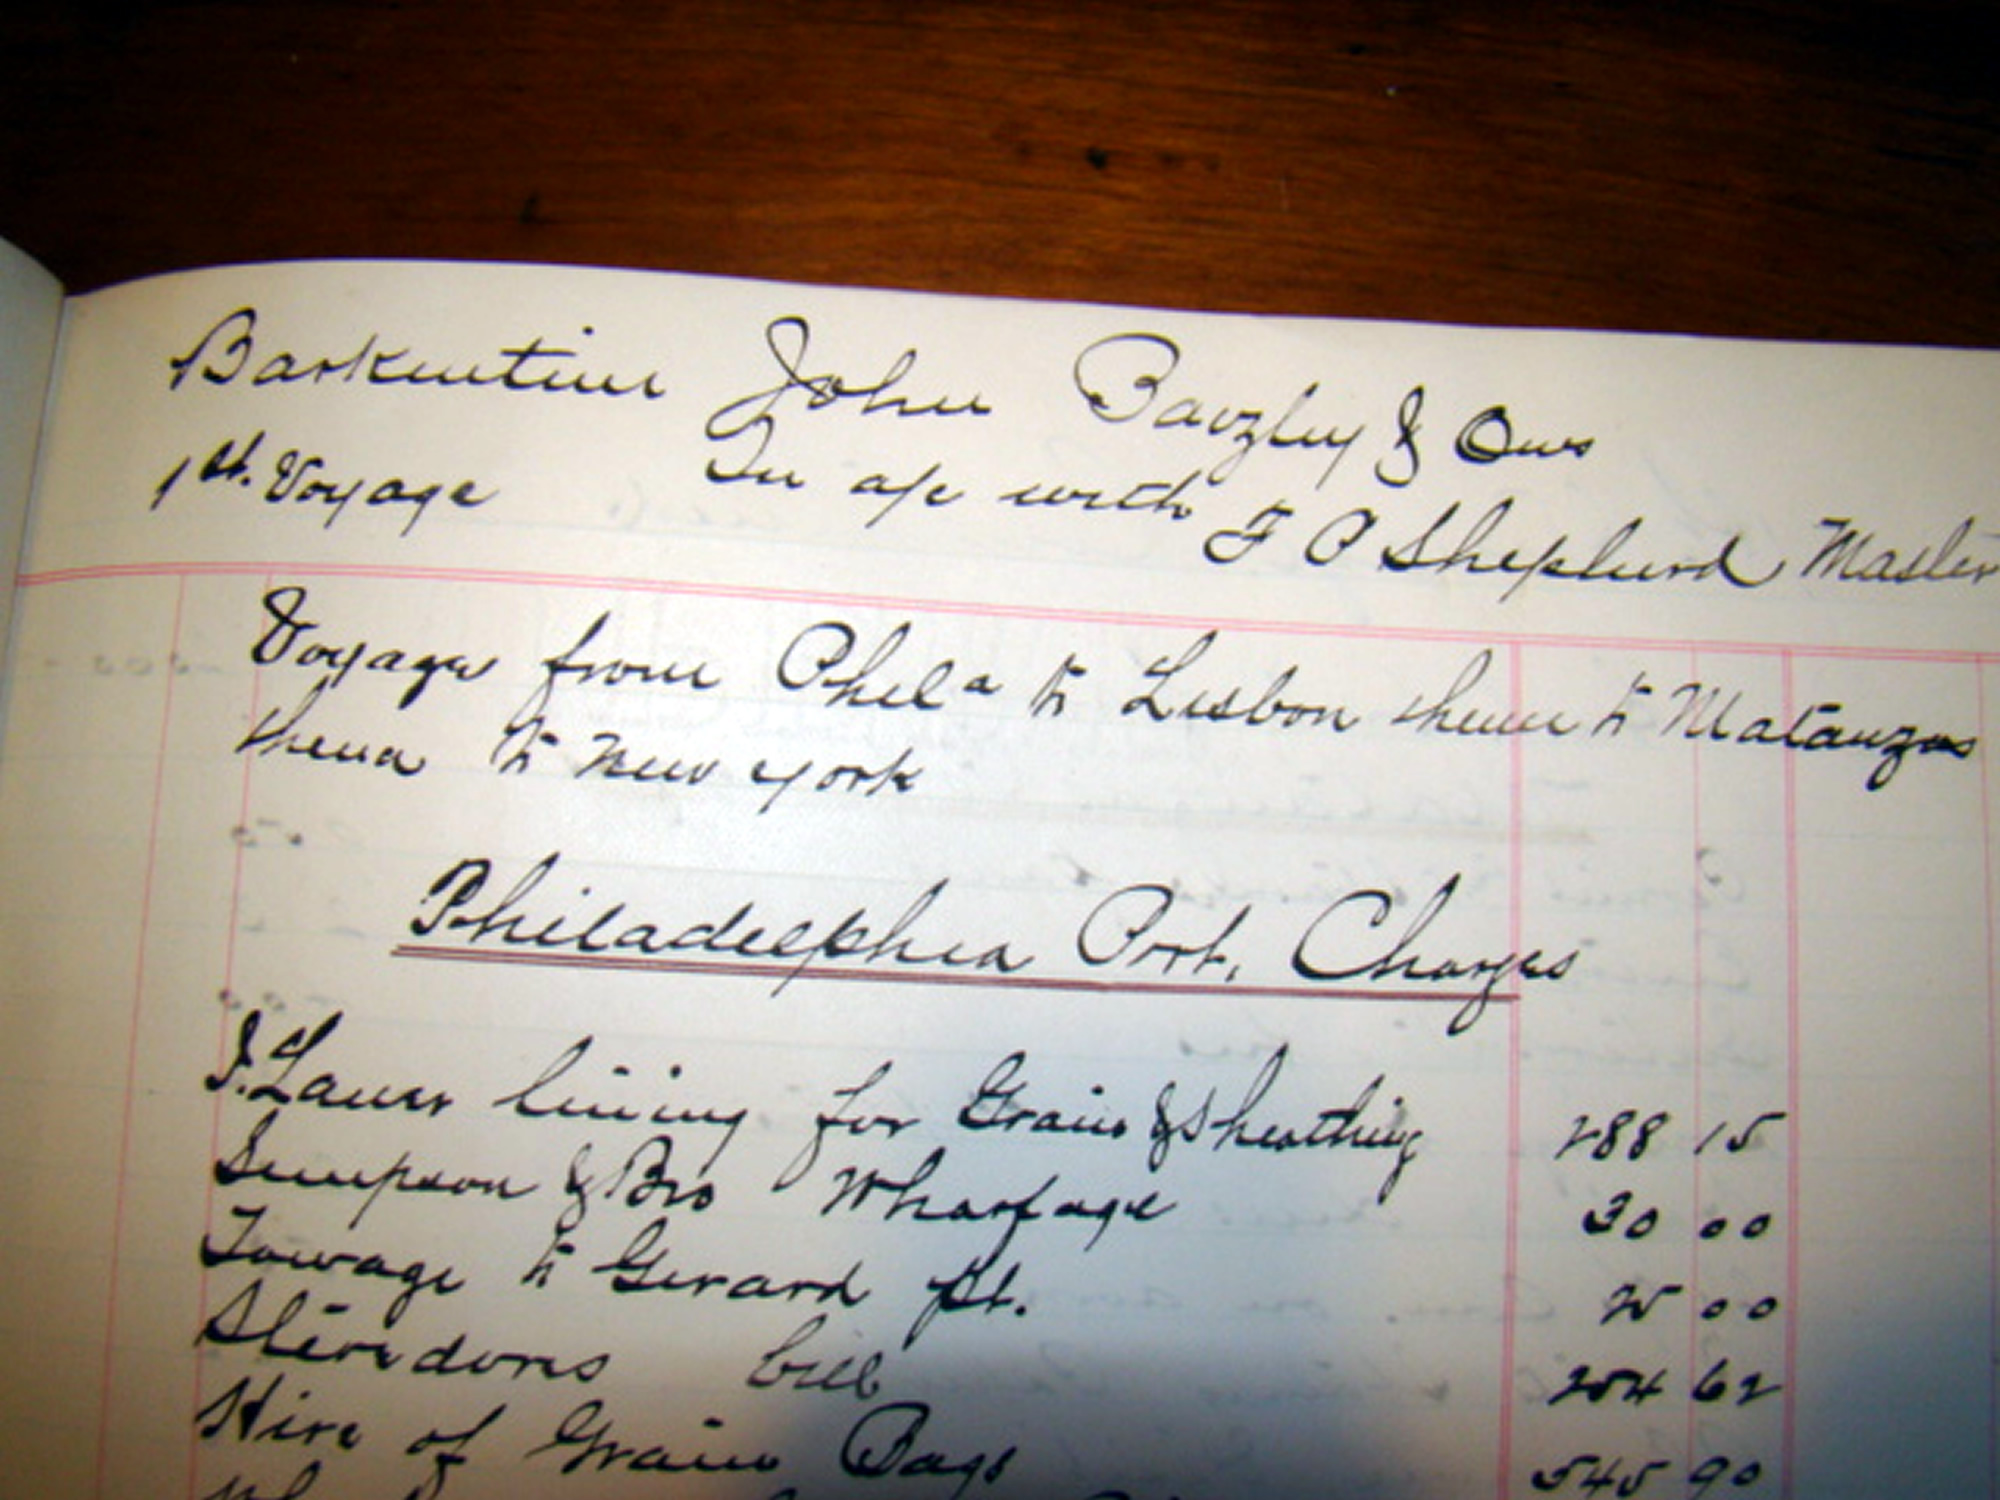 Barkentine John Bazley & Ows
1st. Voyage In a/c with F O Shepherd Master
Voyage from Phila to Lisbon thence to Matanzas
thence to New York
Philadelphia Port. Charges
J. Lauer lining for Grain & Sheathing 288 15
Simpson & Bro Wharfage 30 00
Towage to Gerard pt. 25 00
Stevedores bill 254 62
Hire of Grain Bags 545 90